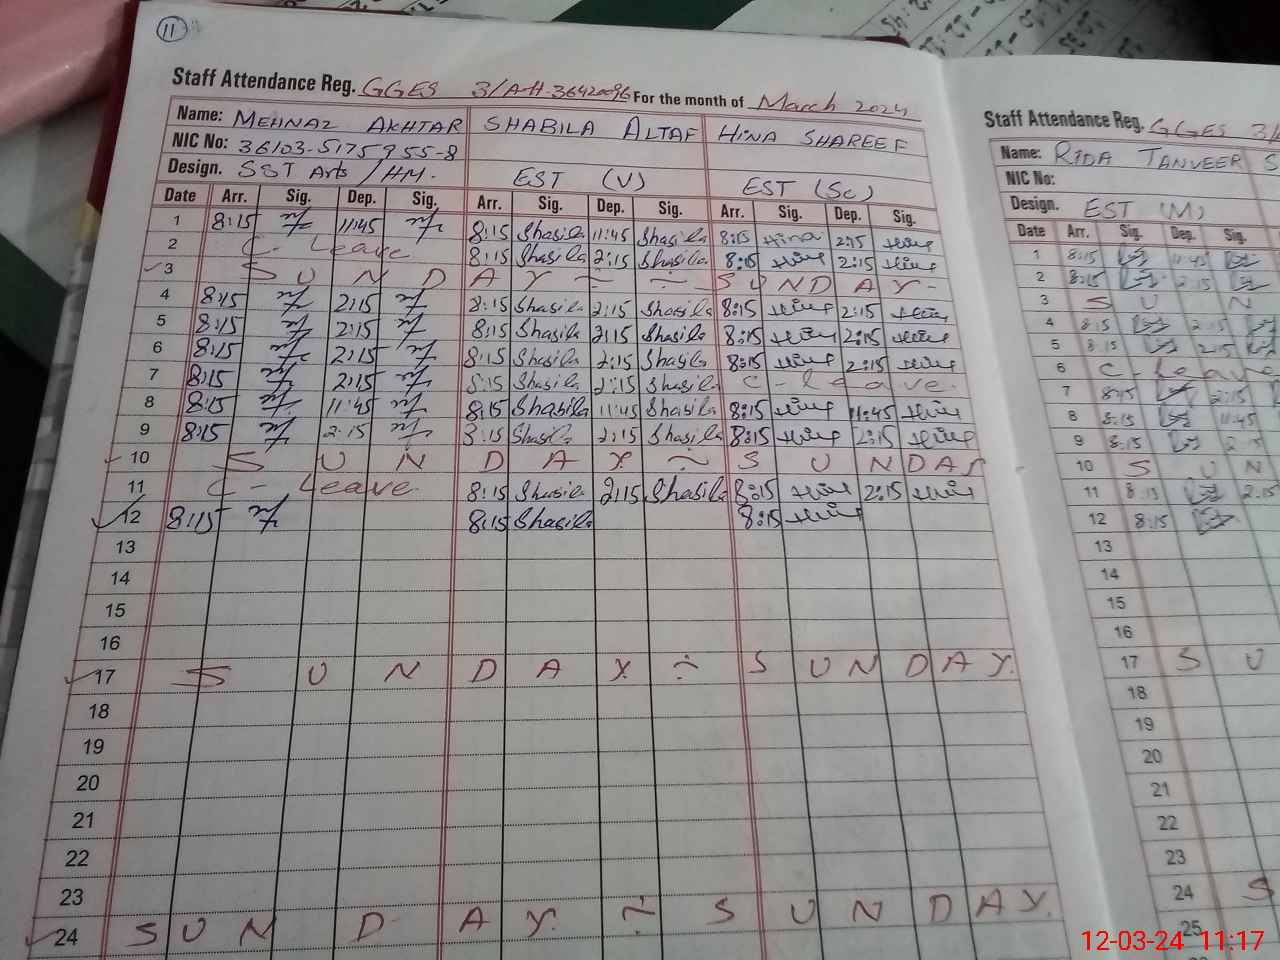 11
Staff Attendance Reg. GGES 3/AH. 36420096 For the month of March 2024
Name: MEHNAZ AKHTAR SHABILA ALTAF HINA SHAREEF
NIC No: 36103-5175955-8
Design. SST Arts / HM. EST (V) EST (Sc)
Date Arr. Sig. Dep. Sig. Arr. Sig. Dep. Sig. Arr. Sig. Dep. Sig.
1 8:15 11:45 8:15 Shasila 11:45 Shasila 8:15 Hina 2:15
2 C- Leave 8:15 Shasila 2:15 Shasila 8:15 2:15
3 S U N D A Y ÷ ÷ S U N D A Y -
4 8:15 2:15 8:15 Shasila 2:15 Shasila 8:15 2:15
5 8:15 2:15 8:15 Shasila 2:15 Shasila 8:15 2:15
6 8:15 2:15 8:15 Shasila 2:15 Shasila 8:15 2:15
7 8:15 2:15 8:15 Shasila 2:15 Shasila C - leave.
8 8:15 11:45 8:15 Shasila 11:45 Shasila 8:15 11:45
9 8:15 2:15 8:15 Shasila 2:15 Shasila 8:15 2:15
10 S U N D A Y ÷ S U N D A Y
11 C - Leave. 8:15 Shasila 2:15 Shasila 8:15 2:15
12 8:15 8:15 Shasila 8:15
13
14
15
16
17 S U N D A Y ÷ S U N D A Y.
18
19
20
21
22
23
24 S U N D A Y. ÷ S U N D A Y.
Staff Attendance Reg. GGES 3/
Name: RIDA TANVEER S
NIC No:
Design. EST (M)
Date Arr. Sig. Dep. Sig.
1 8:15 11:45
2 8:15 2:15
3 S U N
4 8:15 2:15
5 8:15 2:15
6 C - Leave
7 8:15 2:15
8 8:15 11:45
9 8:15 2:15
10 S U N
11 8:15 2:15
12 8:15
13
14
15
16
17 S U
18
19
20
21
22
23
24 S
25
12-03-24 11:17